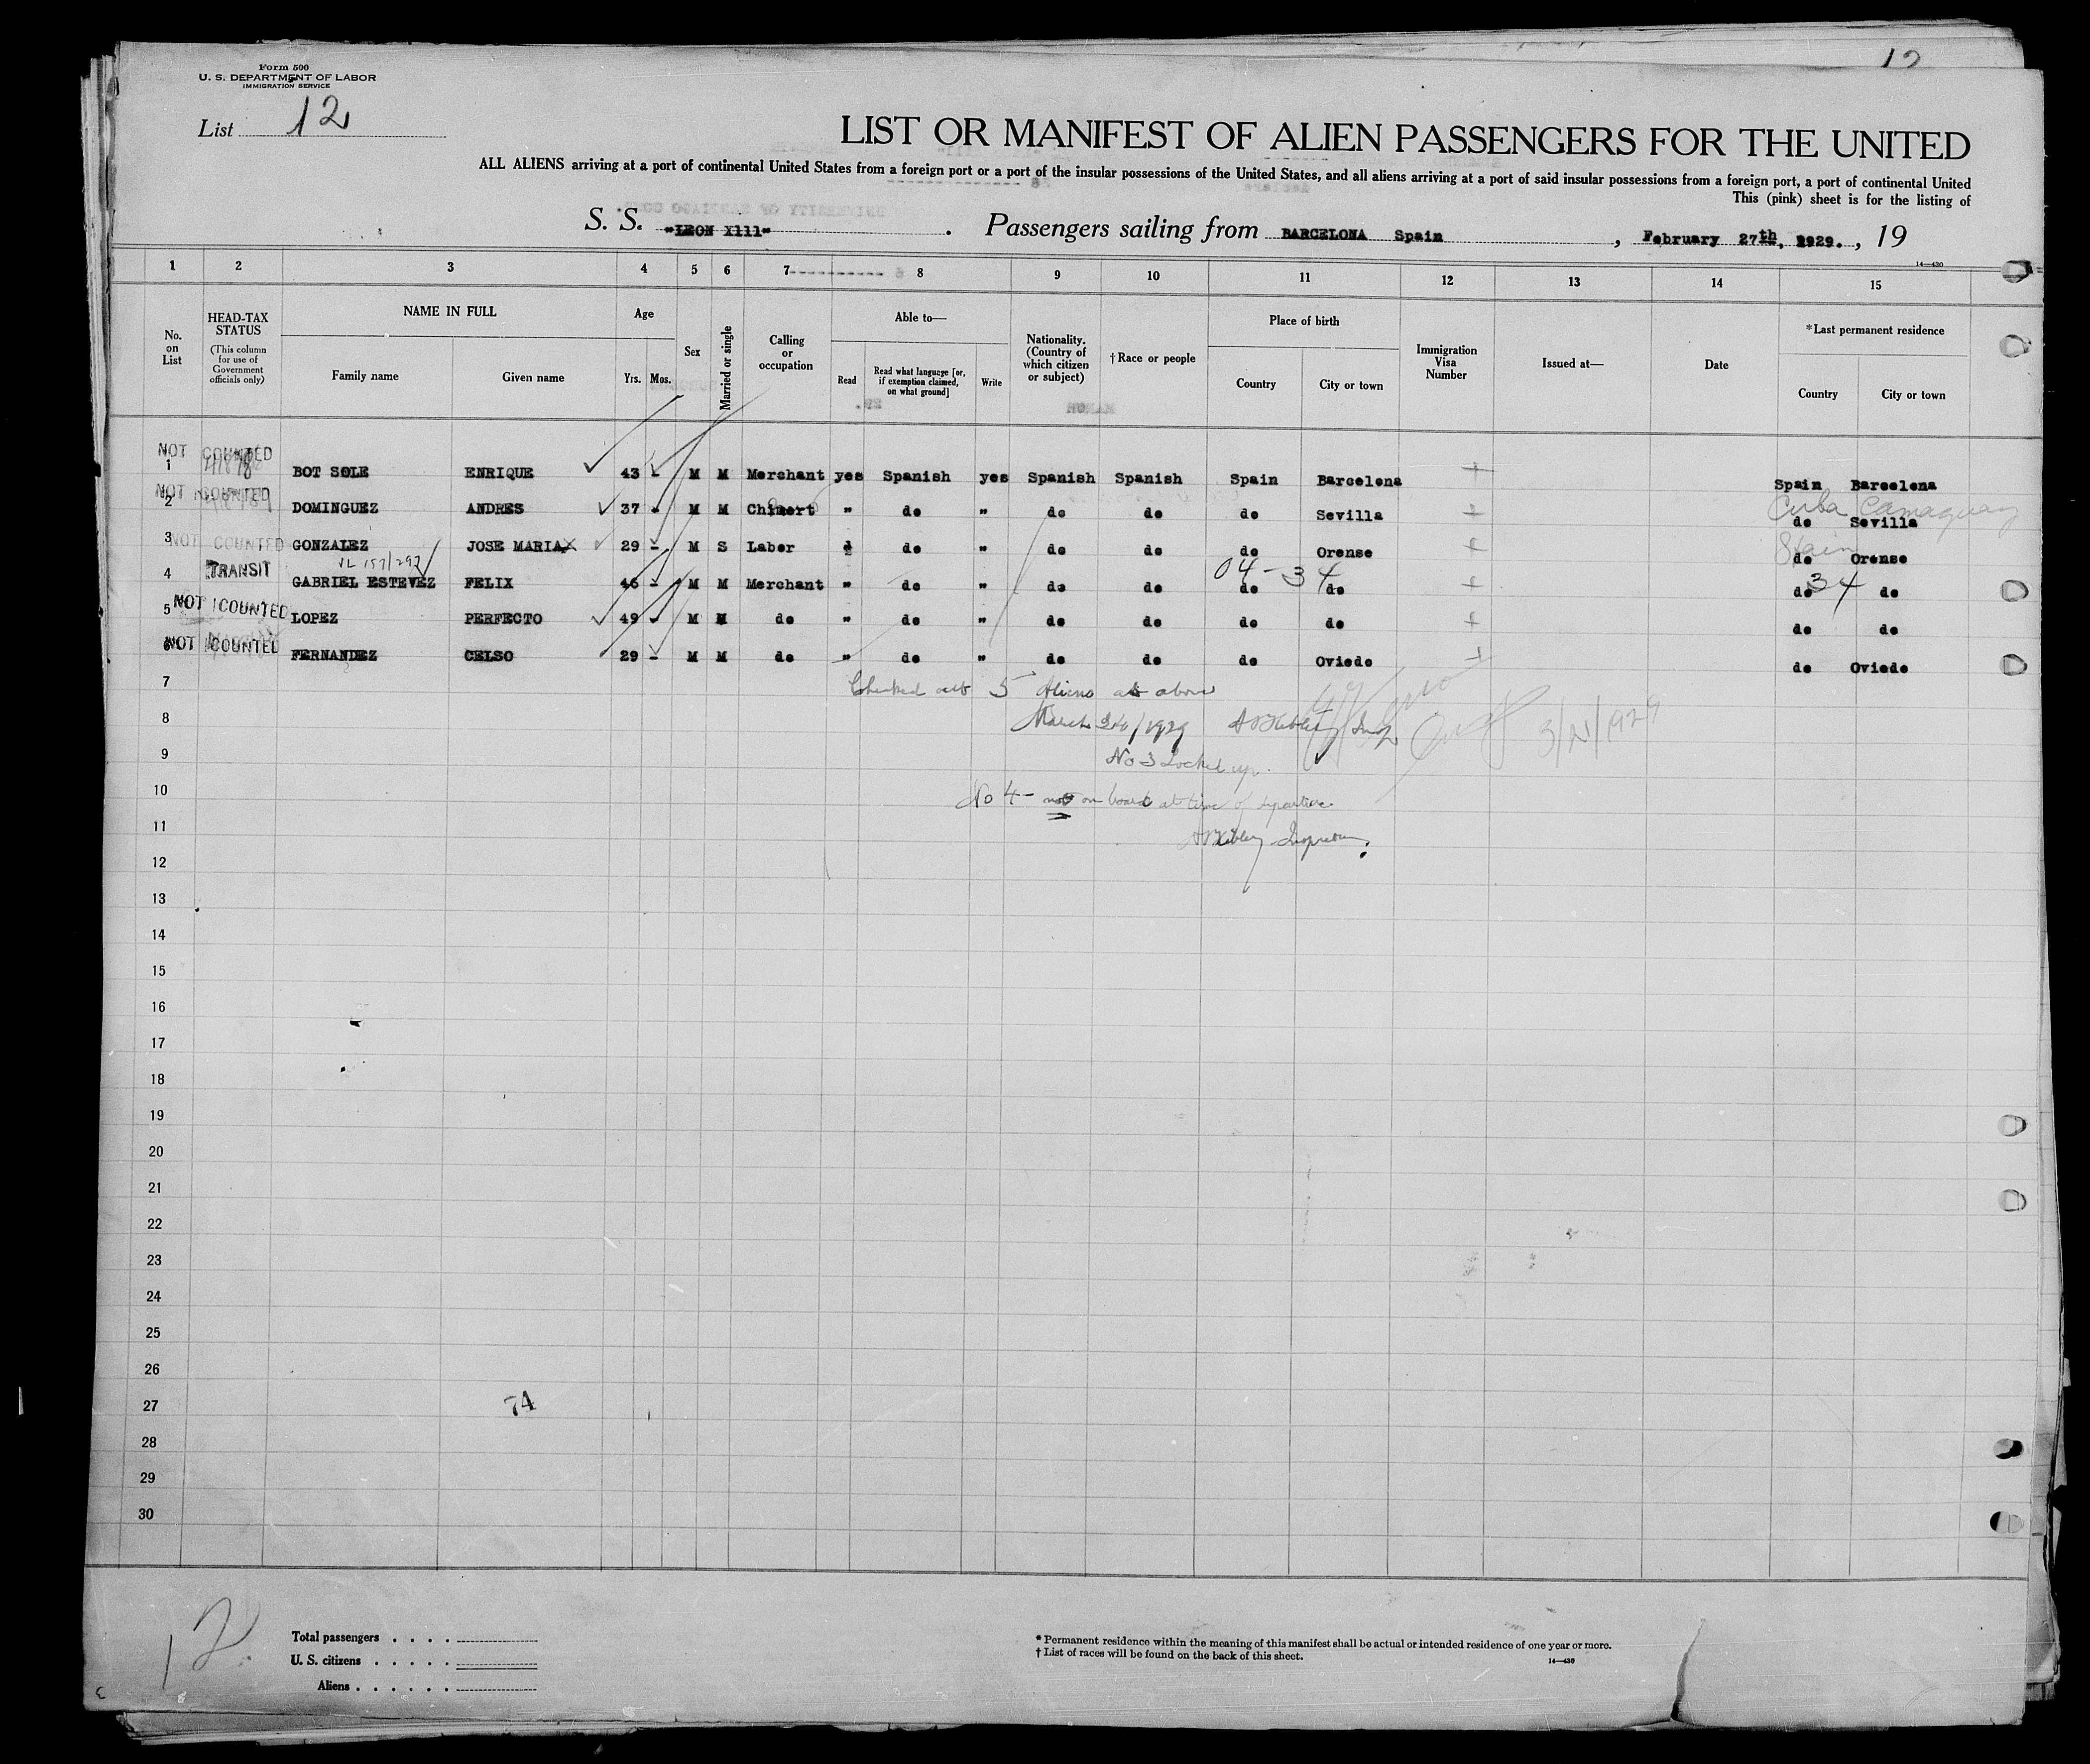 12
Form 500
U. S. DEPARTMENT OF LABOR
IMMIGRATION SERVICE
List 12
LIST OR MANIFEST OF ALIEN PASSENGERS FOR THE UNITED
ALL ALIENS arriving at a port of continental United States from a foreign port or a port of the insular possessions of the United States, and all aliens arriving at a port of said insular possessions from a foreign port, a port of continental United
This (pink) sheet is for the listing of
S. S. "LEON X111" . Passengers sailing from BARCELONA Spain , February 27th, 1929. , 19
14—430
1 2 3 4 5 6 7 8 9 10 11 12 13 14 15
No. on List
HEAD-TAX STATUS (This column for use of Government officials only)
NAME IN FULL
Family name Given name
Age
Yrs. Mos.
Sex
Married or single
Calling or occupation
Able to—
Read
Read what language [or, if exemption claimed, on what ground]
Write
Nationality. (Country of which citizen or subject)
†Race or people
Place of birth
Country City or town
Immigration Visa Number
Issued at—
Date
*Last permanent residence
Country City or town
NOT COUNTED
1 BOT SOLE ENRIQUE 43 - M M Merchant yes Spanish yes Spanish Spanish Spain Barcelona Spain Barcelona
NOT COUNTED
Cuba Camaguay
2 DOMINGUEZ ANDRES 37 - M M " do " do do do Sevilla do Sevilla
NOT COUNTED
Spain
3 GONZALEZ JOSE MARIA 29 - M S Labor do " do do do Orense do Orense
TRANSIT
VL 157/297
04-34
34
4 GABRIEL ESTEVEZ FELIX 46 - M M Merchant " do " do do do do do do
NOT COUNTED
5 LOPEZ PERFECTO 49 - M M do " do " do do do do do do
NOT COUNTED
6 FERNANDEZ CELSO 29 - M M do " do " do do do Oviedo do Oviedo
7 Checked out 5 Aliens as above
8 March /1929
9 No 3 Locked up.
10 No 4 - not on board at time of departure
11 Inspector
12
13
14
15
16
17
18
19
20
21
22
23
24
25
26
27 74
28
29
30
12
Total passengers . . . .
U. S. citizens . . . . .
Aliens . . . . . .
* Permanent residence within the meaning of this manifest shall be actual or intended residence of one year or more.
† List of races will be found on the back of this sheet.
14—430